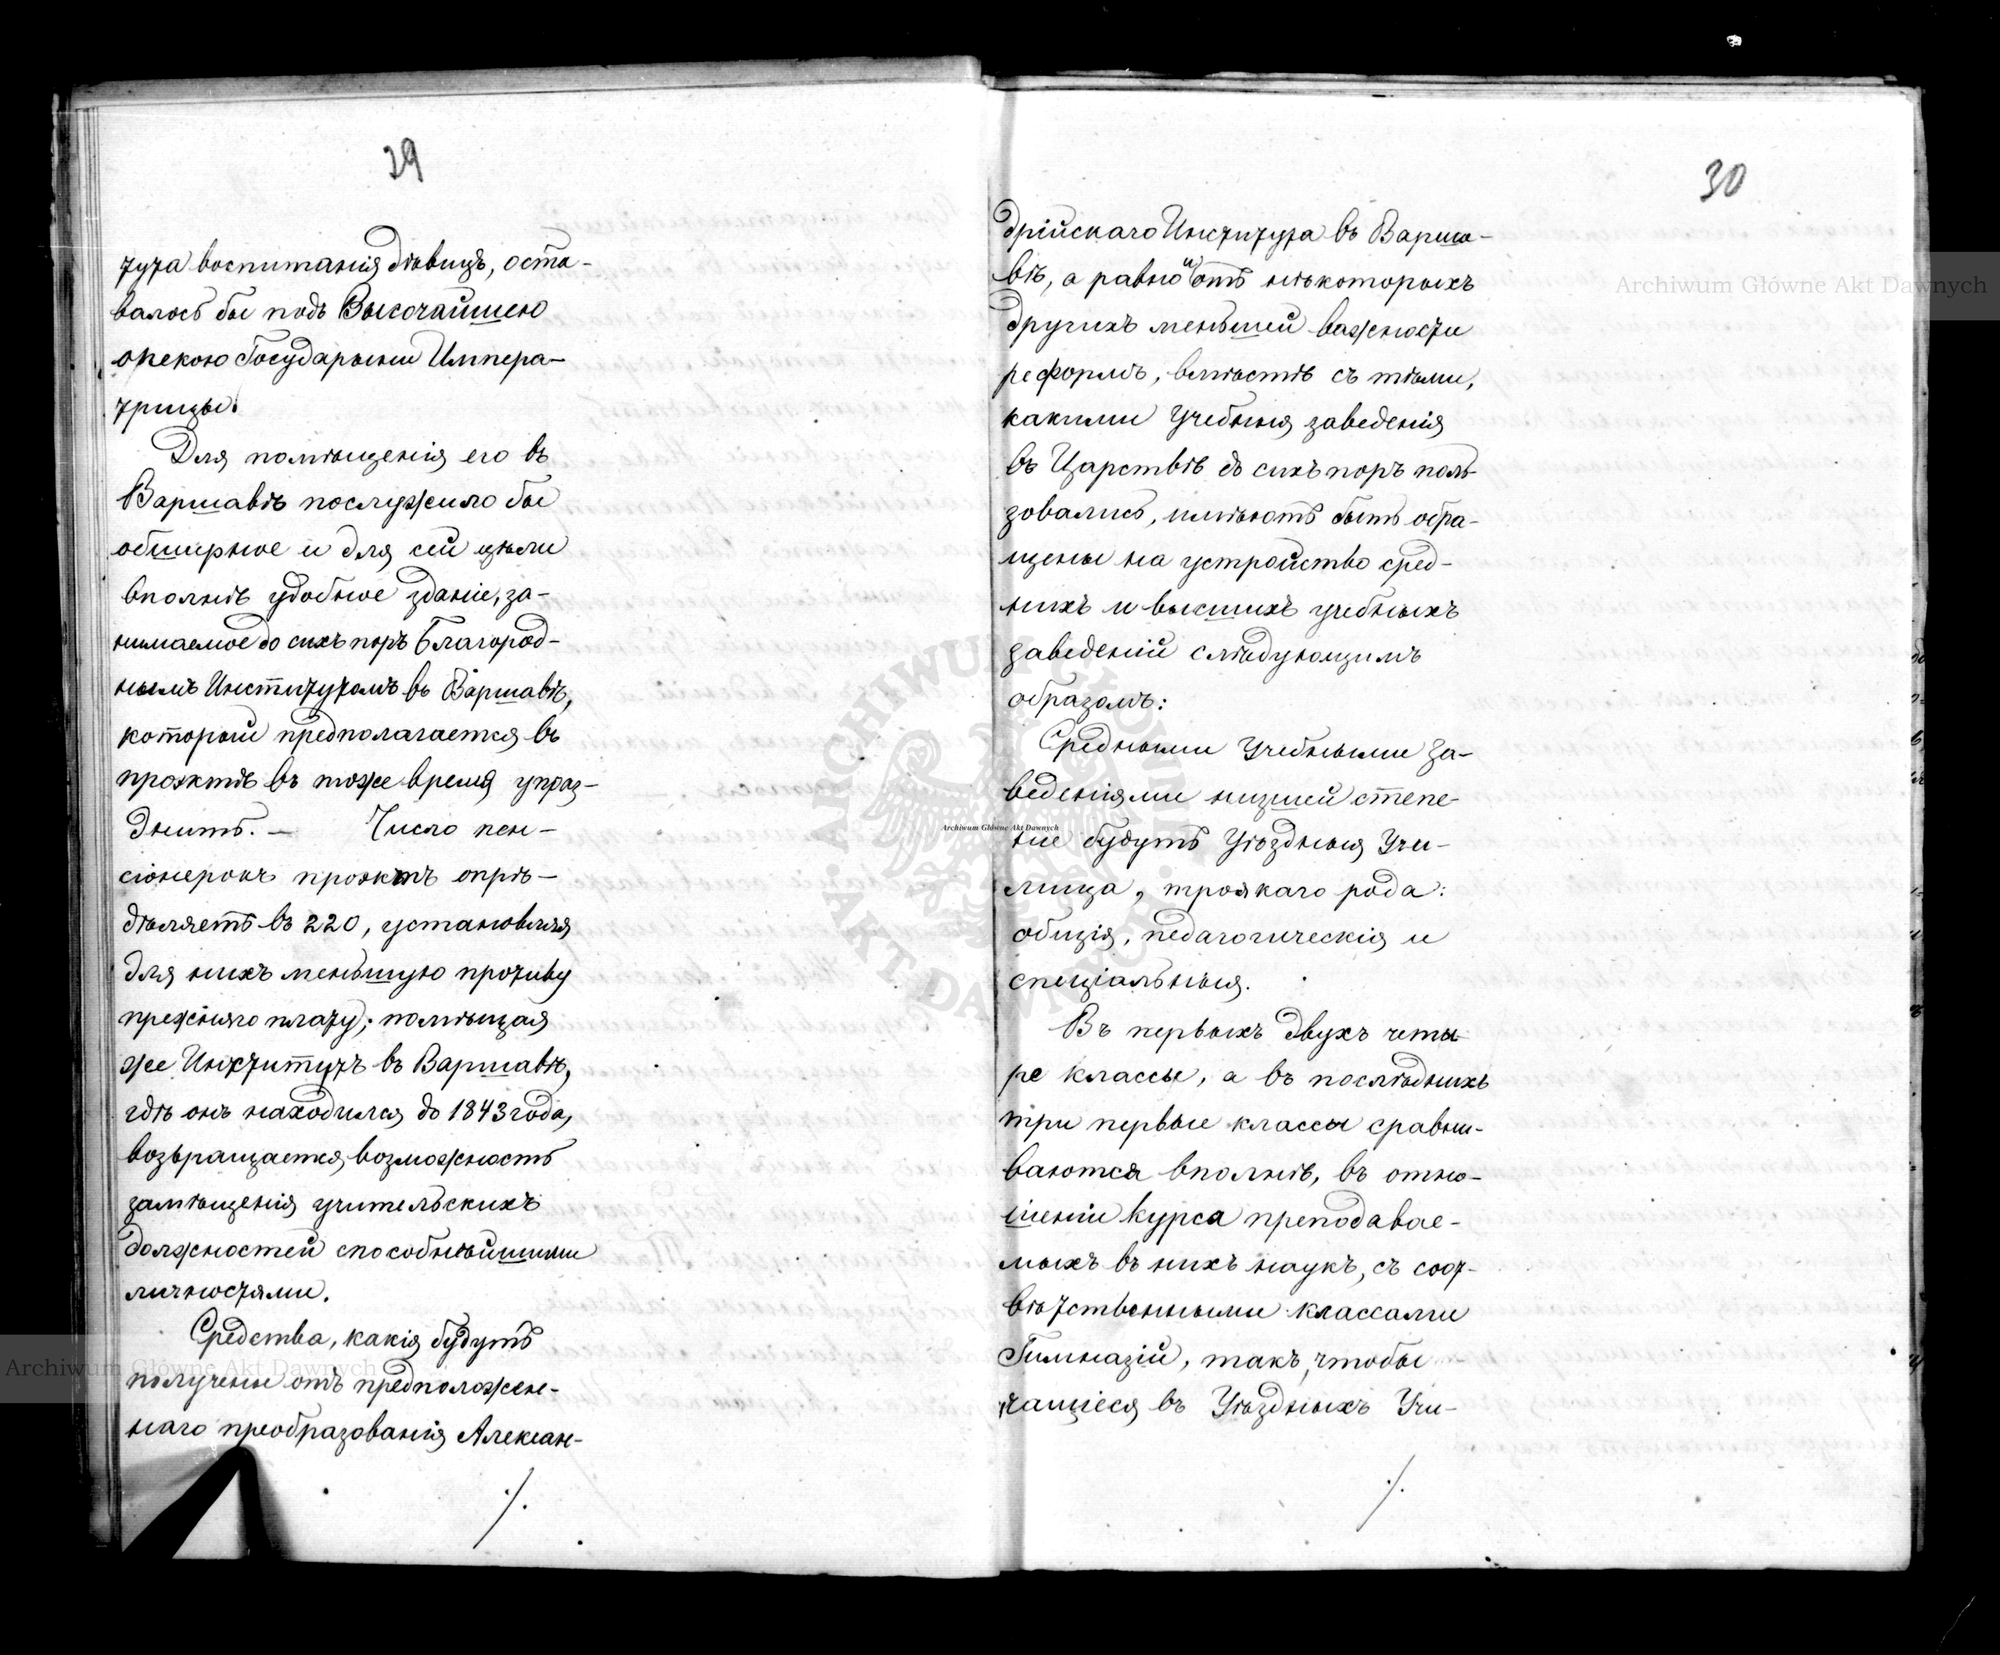 29
тута воспитанія дѣвицъ, оста-
валось бы подъ Высочайшею
опекою Государыни Импера-
трицы.
Для помѣщенія его въ
Варшавѣ послужило бы
обширное и для сей цѣли
вполнѣ удобное зданіе, за-
нимаемое до сихъ поръ Благород-
нымъ Институтомъ въ Варшавѣ,
который предполагается въ
проэктѣ въ тоже время упраз-
днить. — Число пен-
сіонерокъ проэктъ опрѣ-
дѣляетъ въ 220, установляя
для нихъ меньшую противу
прежняго плату; помѣщая
же Институтъ въ Варшавѣ,
гдѣ онъ находился до 1843 года,
возвращается возможность
замѣщенія учительскихъ
должностей способнѣйшими
личностями.
Средства, какія будутъ
получены отъ предположен-
наго преобразованія Алексан-
./.
30
дрійскаго Института въ Варша-
вѣ, а равно и отъ нѣкоторыхъ
другихъ меньшей важности
реформъ, вмѣстѣ съ тѣми,
какими учебныя заведенія
въ Царствѣ до сихъ поръ поль-
зовались, имѣютъ быть обра-
щены на устройство сред-
нихъ и высшихъ учебныхъ
заведеній слѣдующимъ
образомъ:
Средными учебными за-
веденіями низшей степе-
ни будутъ Уѣздныя Учи-
лища, троякаго рода:
общія, педагогическія и
спеціальныя.
Въ первыхъ двухъ четы-
ре классы, а въ послѣднихъ
три первые классы сравни-
ваются вполнѣ, въ отно-
шеніи курса преподавае-
мыхъ въ нихъ наукъ, съ соот-
вѣтственными классами
Гимназій, такъ, чтобы
учащіеся въ Уѣздныхъ Учи-
./.
Archiwum Główne Akt Dawnych
Archiwum Główne Akt Dawnych
Archiwum Główne Akt Dawnych
ARCHIWUM GŁÓWNE AKT DAWNYCH